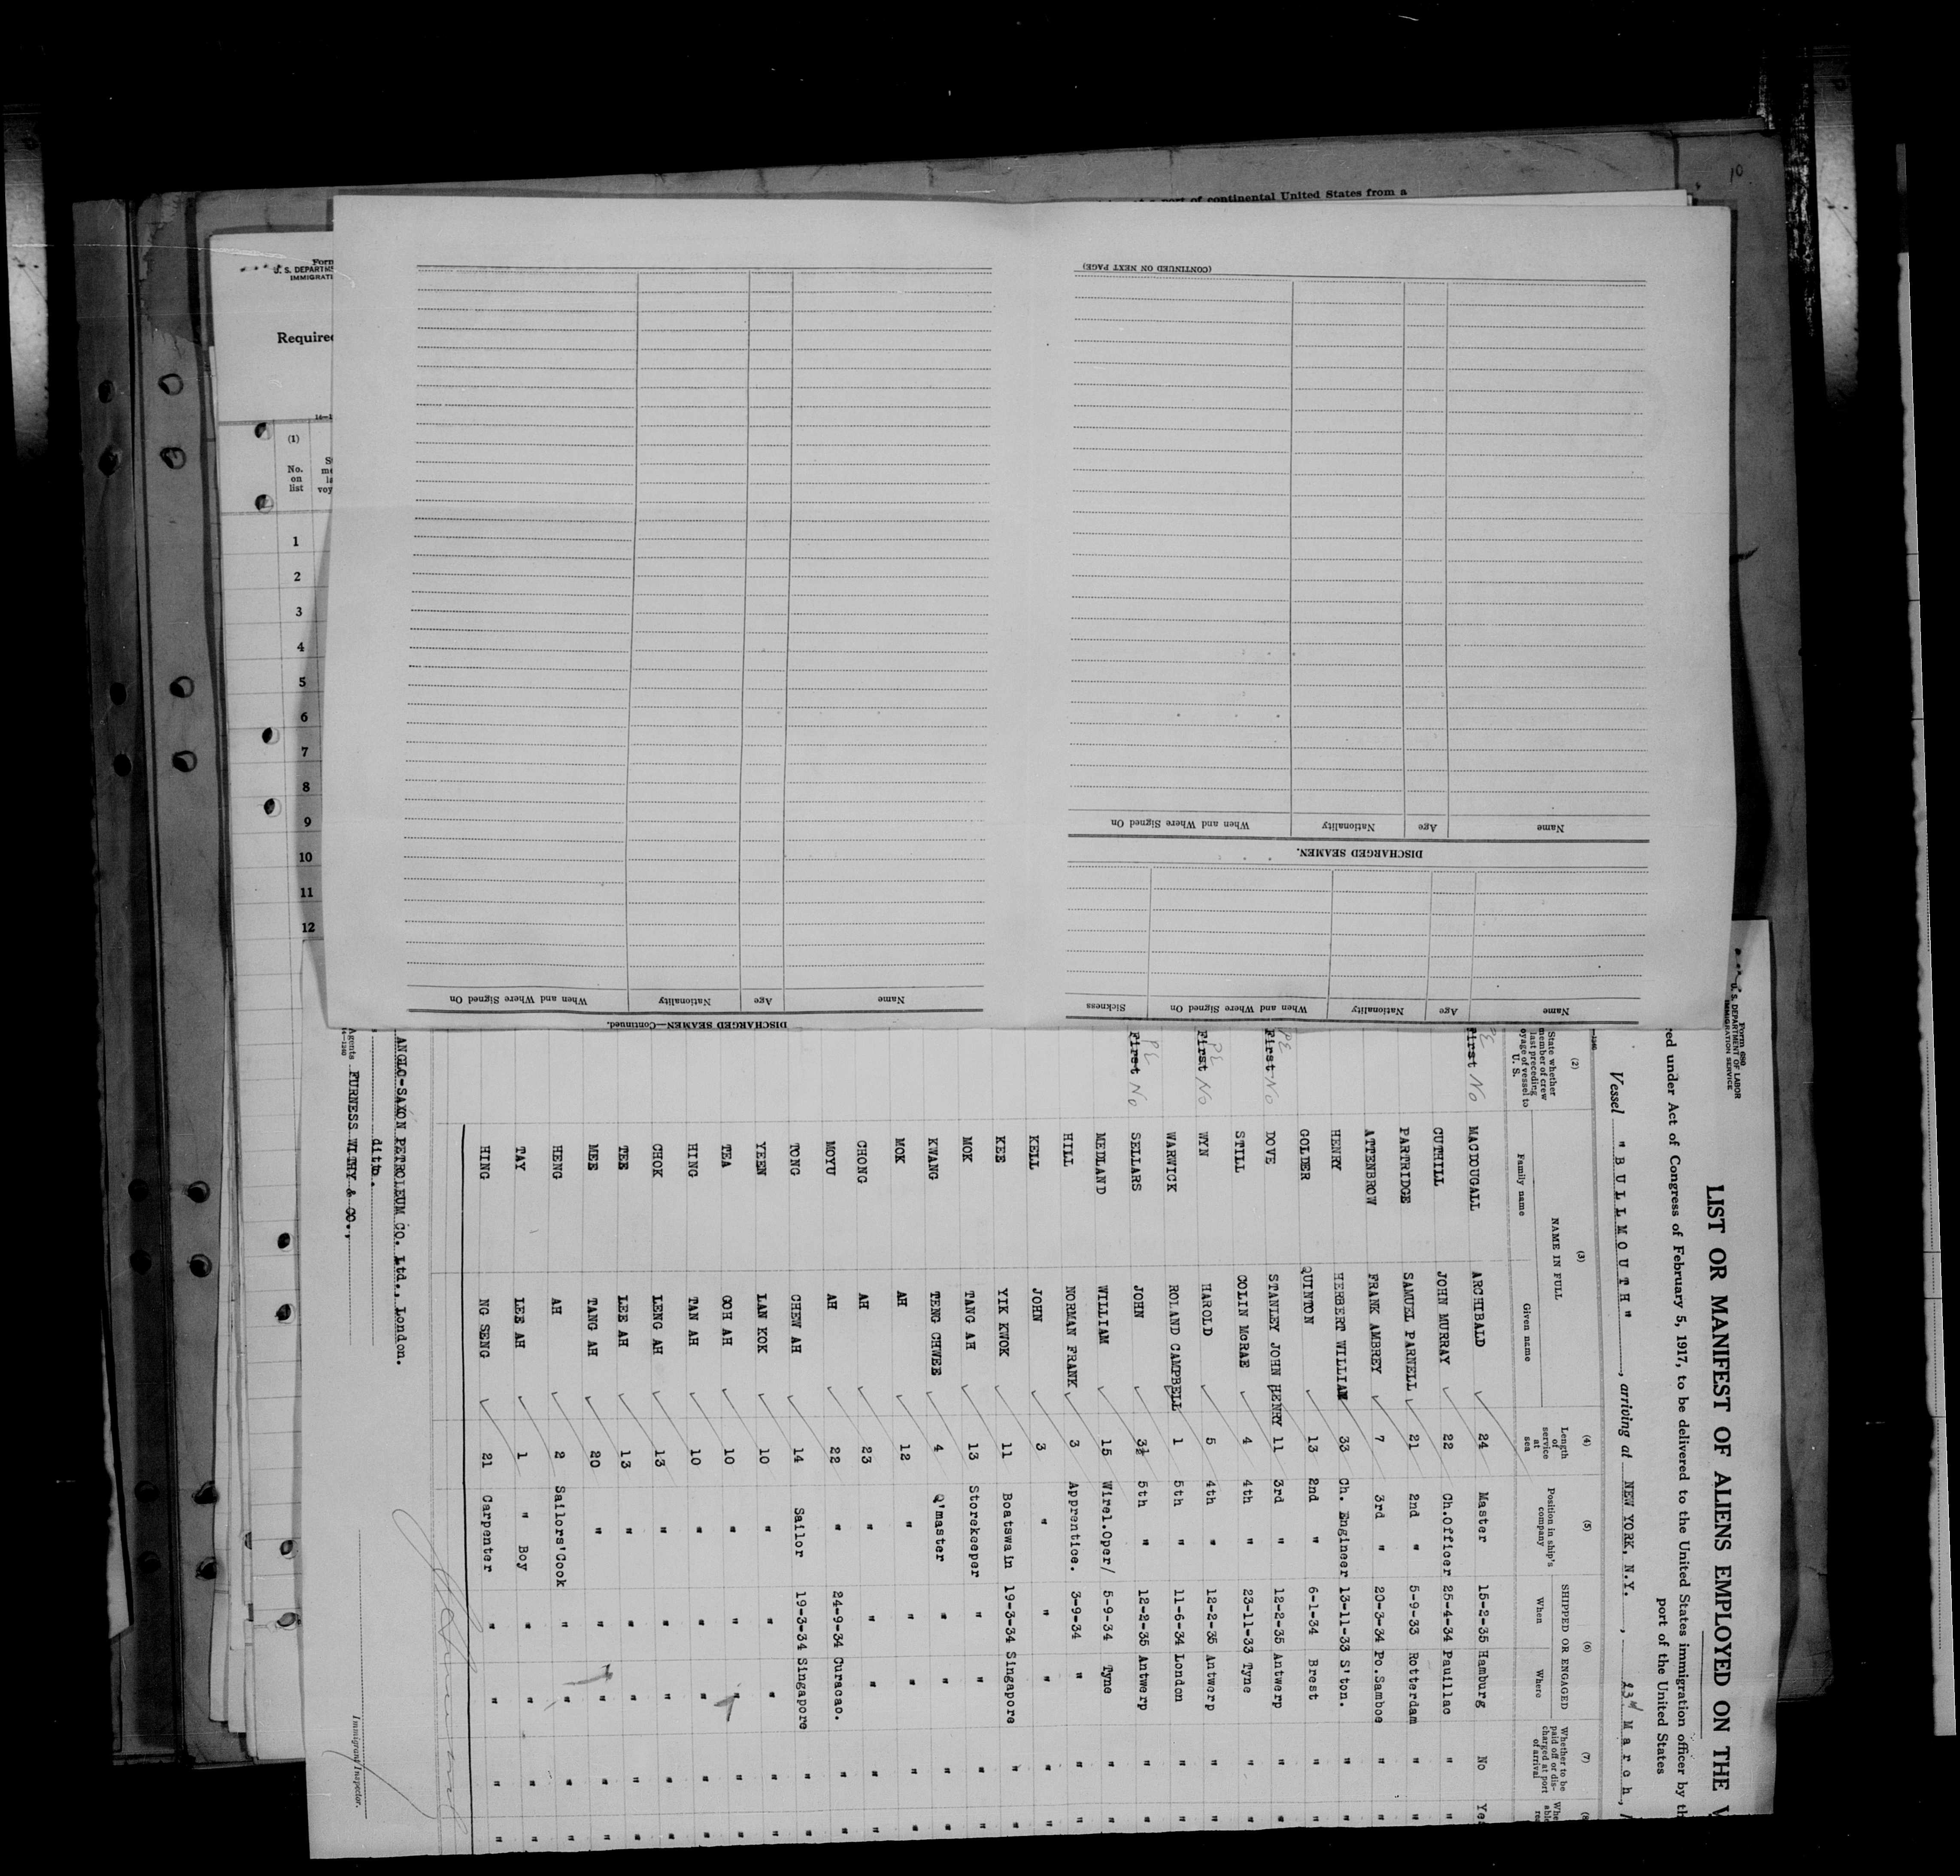 10
port of continental United States from a
Form
U. S. DEPARTM
IMMIGRATI
Required
(1)
No.
on
list
1
2
3
4
5
6
7
8
9
10
11
12
(CONTINUED ON NEXT PAGE)
Name Age Nationality When and Where Signed On
DISCHARGED SEAMEN.
Name Age Nationality When and Where Signed On Sickness
DISCHARGED SEAMEN—Continued.
Name Age Nationality When and Where Signed On
Form 680
U. S. DEPARTMENT OF LABOR
IMMIGRATION SERVICE
LIST OR MANIFEST OF ALIENS EMPLOYED ON THE V
red under Act of Congress of February 5, 1917, to be delivered to the United States immigration officer by th
port of the United States
Vessel "BULLMOUTH", arriving at NEW YORK, N.Y., 23rd March,
(2) (3) (4) (5) (6) (7) (8
State whether member of crew last preceding voyage of vessel to U. S.
NAME IN FULL
Family name Given name
Length of service at sea
Position in ship's company
SHIPPED OR ENGAGED
When Where
Whether to be paid off or discharged at port of arrival
First No PE MACDOUGALL ARCHIBALD 24 Master 15-2-35 Hamburg No Yes
CUTHILL JOHN MURRAY 22 Ch.Officer 25-4-34 Pauillac " "
PARTRIDGE SAMUEL PARNELL 21 2nd " 5-9-33 Rotterdam " "
ATTENBROW FRANK AMBREY 7 3rd " 20-3-34 Po.Samboe " "
HENRY HERBERT WILLIAM 33 Ch. Engineer 13-11-33 S'ton. " "
GOLDER QUINTON 13 2nd " 6-1-34 Brest " "
First No PE DOVE STANLEY JOHN HENRY 11 3rd " 12-2-35 Antwerp " "
STILL COLIN McRAE 4 4th " 23-11-33 Tyne " "
First No PE WYN HAROLD 5 4th " 12-2-35 Antwerp " "
WARWICK ROLAND CAMPBELL 1 5th " 11-6-34 London " "
First No PE SELLARS JOHN 3½ 5th " 12-2-35 Antwerp " "
MEDLAND WILLIAM 15 Wirel.Oper/ 5-9-34 Tyne " "
HILL NORMAN FRANK 3 Apprentice. 3-9-34 " " "
KELL JOHN 3 " " " " "
KEE YIK KWOK 11 Boatswain 19-3-34 Singapore " "
MOK TANG AH 13 Storekeeper " " " "
KWANG TENG CHWEE 4 Q'master " " " "
MOK AH 12 " " " " "
CHONG AH 23 " " " " "
MOYU AH 22 " 24-9-34 Curacao. " "
TONG CHEW AH 14 Sailor 19-3-34 Singapore " "
YEEN LAN KOK 10 " " " " "
TEA GOH AH 10 " " " " "
HING TAN AH 10 " " " " "
CHOK LENG AH 13 " " " " "
TEE LEE AH 13 " " " " "
MEE TANG AH 20 " " " " "
HENG AH 2 Sailors'Cook " " " "
TAY LEE AH 1 " Boy " " " "
HING NG SENG 21 Carpenter " " " "
ANGLO-SAXON PETROLEUM CO. Ltd., London.
ditto.
Agents FURNESS WITHY & CO.,
Immigrant Inspector.